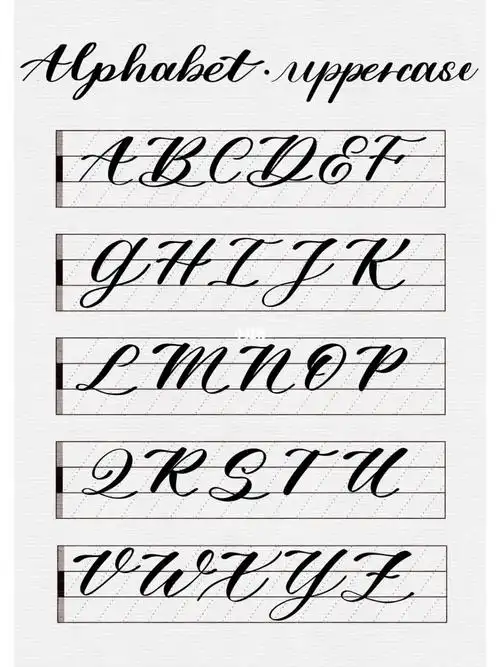 Alphabet · uppercase
A B C D E F
G H I J K
L M N O P
Q R S T U
V W X Y Z